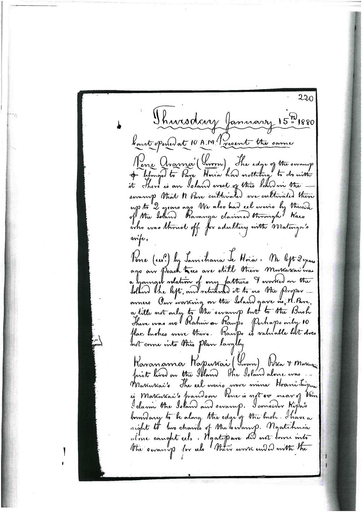 220
Thursday January 15th 1880
Court opened at 10 A.M. Present the same
Pene Arama (Sworn). The edge of the swamp
belonged to Huia had nothing to do with
it. There is an Island west of this land in the
swamp that cultivated we cultivated there
up to 2 years ago We also had eel weirs by the end
of the Island claimed through
who was thrust off for adultery with
wife.
Pene (xxd.) by Te Huia. We left 2 years
ago our peach trees are still there Makakai was
a younger relation of my fathers & worked on the
Island He left, and returned it to us the proper
owners Our working on the Island gave us,
a title not only to the swamp but to the Bush
There was no Rahui on Raupo Perhaps only 10
flax bushes were there Raupo is valuable but does
not come into this plan largely
Karanama Kapukai (Sworn)
first lived on the Island The Island alone was
Makakai's The eel weirs were mine
is Makakai's grandson Pene is not or near of kin
I claim the Island and swamp. I consider
boundary to be along the edge of the bush. I have a
right to two chains of the swamp.
alone caught eels. did not come into
the swamp for eels Their work ended with the